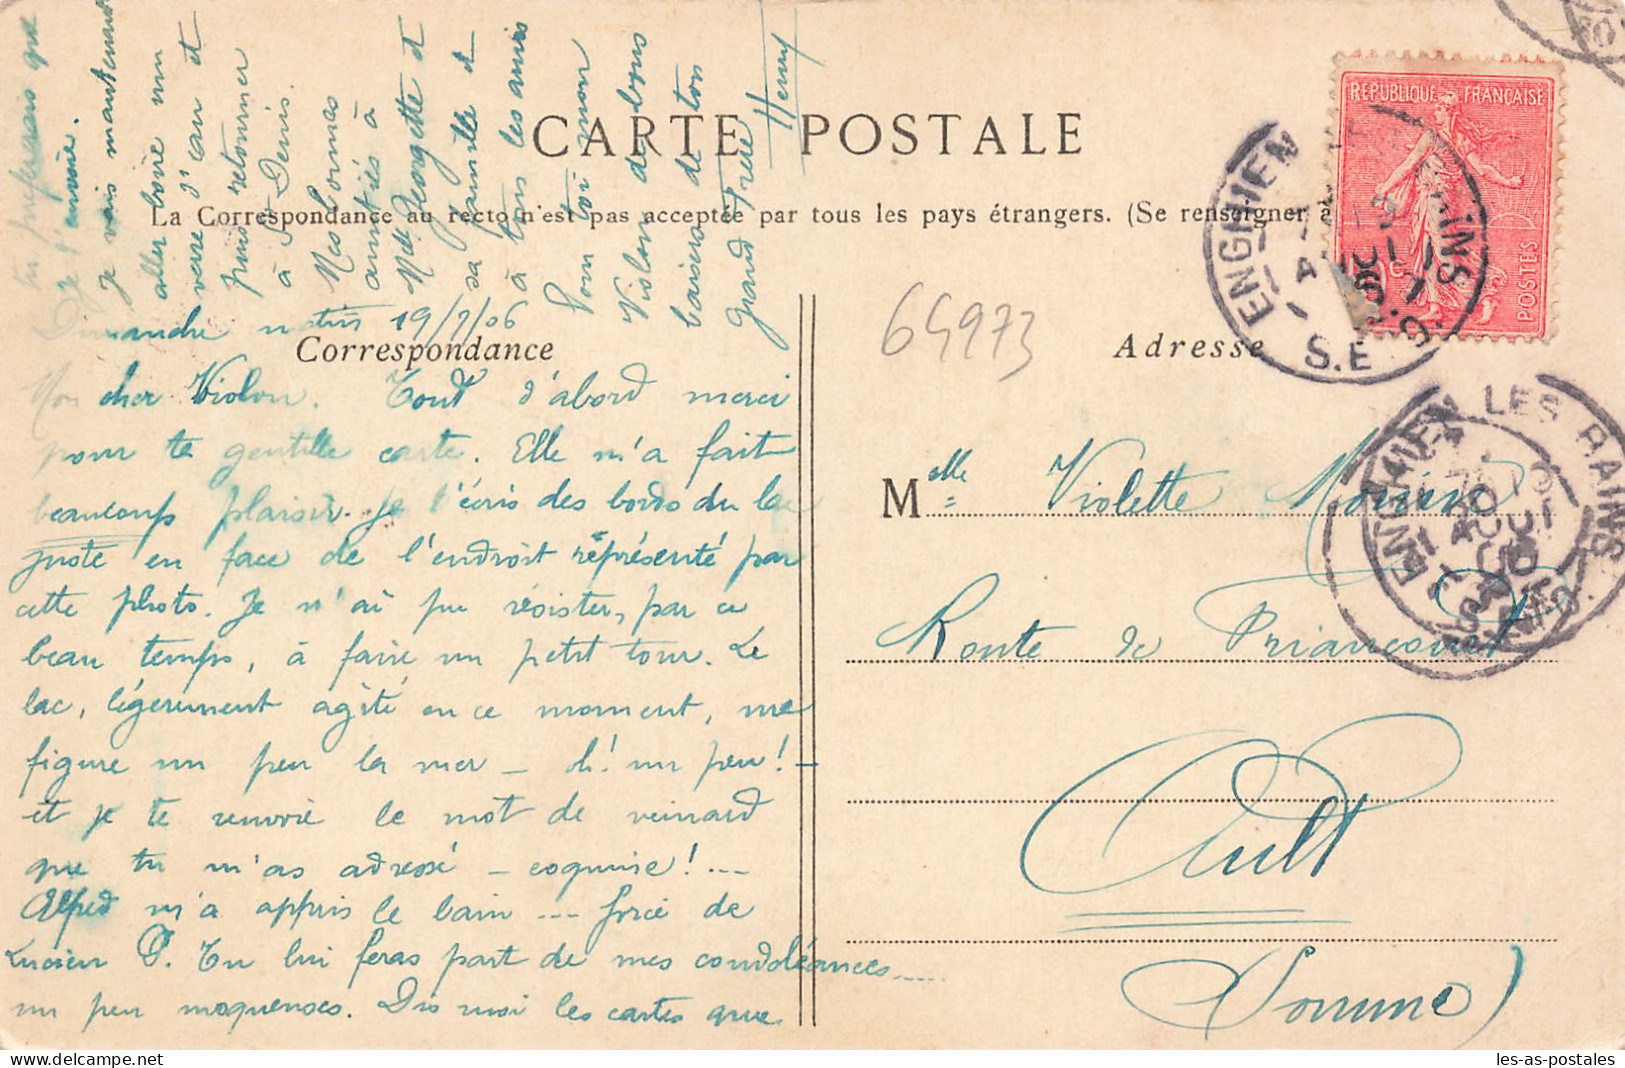 CARTE POSTALE
La Correspondance au recto n'est pas acceptée par tous les pays étrangers. (Se renseigner à
Correspondance
Adresse
64973
REPUBLIQUE FRANÇAISE
POSTES
ENGHIEN
S.E
ENGHIEN LES BAINS
Dimanche matin 19/7/06
Mon cher Violon. Tout d'abord merci
pour ta gentille carte. Elle m'a fait
beaucoup plaisir. Je t'écris des bords du lac
juste en face de l'endroit représenté par
cette photo. Je n'ai pu résister, par ce
beau temps, à faire un petit tour. Le
lac, légèrement agité en ce moment, me
figure un peu la mer _ oh! un peu! _
et je te renvoie le mot de veinard
que tu m'as adressé _ coquine! ...
Alfred m'a appris le bain ... forcé de
Lucien G. Tu lui feras part de mes condoléances ....
un peu moqueuses. Dis moi les cartes que
tu préférais que
je t'envoie.
Je vais maintenant
aller boire mon
verre d'eau et
puis retourner
à St Denis.
Mes bonnes
amitiés à
Melle Georgette et
sa famille et
à tous les amis
Pour toi mon
Violon de bons
baisers de ton
grand frère
Henry
Melle Violette
Route de Friancourt
Ault
(Somme)
les-as-postales